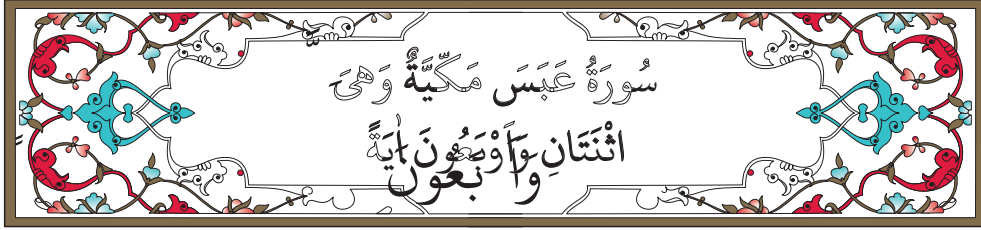 سُورَةُ عَبَسَ مَكِّيَّةٌ وَهِىَ
اثْنَتَانِ وَاَرْبَعُونَ اٰيَةً